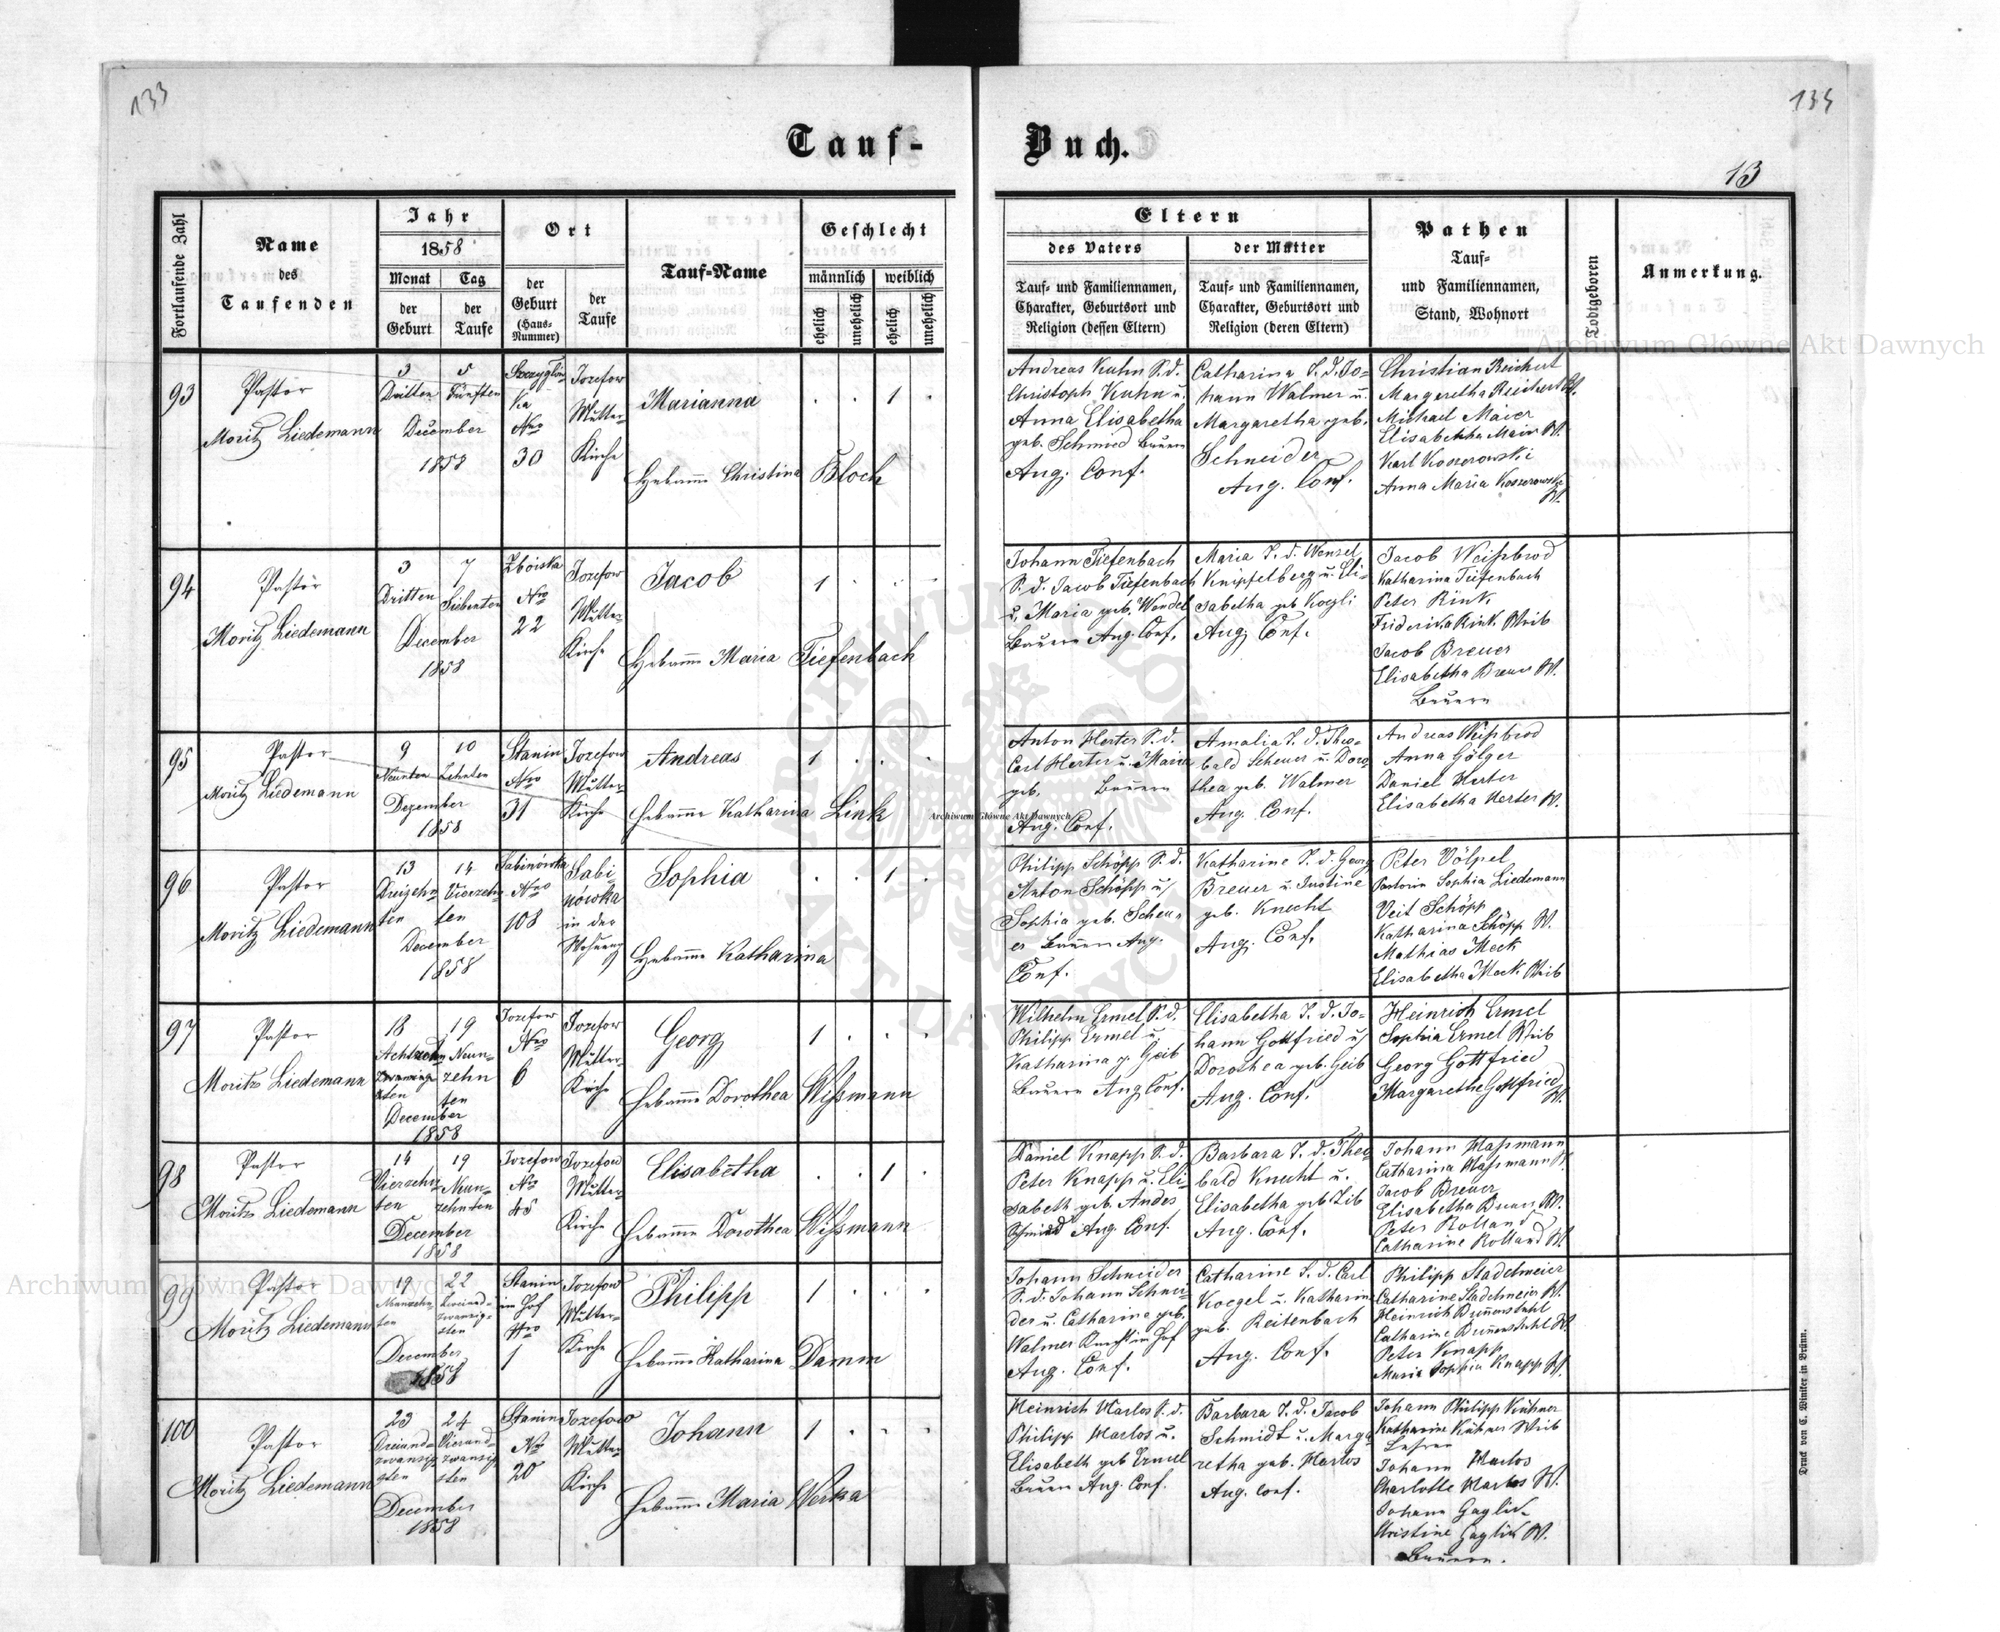 133
134
Tauf-
Buch.
13
Fortlaufende Zahl
Name
des
Taufenden
Jahr
1858
Monat
Tag
der
Geburt
der
Taufe
Ort
der
Geburt
(Haus-
Nummer)
der
Taufe
Tauf-Name
Geschlecht
männlich
weiblich
ehelich
unehelich
ehelich
unehelich
Eltern
des Vaters
der Mutter
Tauf- und Familiennamen,
Charakter, Geburtsort und
Religion (dessen Eltern)
Tauf- und Familiennamen,
Charakter, Geburtsort und
Religion (deren Eltern)
Pathen
Tauf-
und Familiennamen,
Stand, Wohnort
Todtgeboren
Anmerkung.
Archiwum Główne Akt Dawnych
93
Pastor
Moritz Liedemann
3
5
Dritten
Fünften
December
1858
Nro
30
Jozefow
Mutter-
Kirche
Marianna
1
Hebamme Christina Bloch
Andreas Kuhn S. d.
Christoph Kuhn u.
Anna Elisabetha
geb. Schmied Bauern
Aug. Conf.
Catharina T. d. Jo-
hann Walmer u.
Margaretha geb.
Schneider
Aug. Conf.
Christian Reichert
Margaretha Reichert W.
Michael Maier
Elisabetha Maier W.
Karl Kosserowski
Anna Maria Kosserowska
W.
94
Pastor
Moritz Liedemann
3
7
Dritten
Siebenten
December
1858
Zboiska
Nro
22
Jozefow
Mutter-
Kirche
Jacob
1
Hebamme Maria Tiefenbach
Johann Tiefenbach
S. d. Jacob Tiefenbach
u. Maria geb. Wendel
Bauern Aug. Conf.
Maria T. d. Wenzel
Knipfelberg u. Eli-
sabetha geb Koegli
Aug Conf.
Jacob Weißbrod
Katharina Tiefenbach
Peter Rink
Friderika Rink Weib
Jacob Breuer
Elisabetha Breuer W.
Bauern
95
Pastor
Moritz Liedemann
9
10
Neunten
Zehnten
Dezember
1858
Stanin
Nro
31
Jozefow
Mutter-
Kirche
Andreas
1
Hebamme Katharina Link
Anton Herter S. d.
Carl Herter u. Maria
geb. Bauern
Aug. Conf.
Amalia T. d. Theo-
bald Scheuer u. Doro-
thea geb. Walmer
Aug. Conf.
Andreas Weißbrod
Anna Gölger
Daniel Herter
Elisabetha Herter W.
Archiwum Główne Akt Dawnych
96
Pastor
Moritz Liedemann
13
14
Dreizehn-
ten
Vierzehn-
ten
December
1858
Sabinówka
Nro
108
Sabi-
nówka
in der
Wohnung
Sophia
1
Hebamme Katharina
Philipp Schöpp S. d.
Anton Schöpp u
Sophia geb. Scheu-
er Bauern Aug.
Conf.
Katharine T. d. Georg
Breuer u. Justine
geb. Knecht
Aug. Conf.
Peter Völpel
Pastorin Sophia Liedemann
Veit Schöpp
Katharina Schöpp W.
Mathias Meck
Elisabetha Meck Weib
97
Pastor
Moritz Liedemann
18
19
Neun-
zehn
ten
December
1858
Jozefow
Nro
6
Jozefow
Mutter-
Kirche
Georg
1
Hebamme Dorothea Wißmann
Wilhelm Ermel S. d.
Philipp Ermel u.
Katharina g. Geib
Bauern Aug Conf.
Elisabetha T. d. Jo-
hann Gottfried u
Dorothea geb. Geib
Aug. Conf.
Heinrich Ermel
Sophia Ermel Weib
Georg Gottfried
Margarethe Gottfried
W.
98
Pastor
Moritz Liedemann
14
19
Vierzehn-
ten
Neun-
zehnten
December
1858
Jozefow
Nro
45
Jozefow
Mutter-
Kirche
Elisabetha
1
Hebamme Dorothea Wißmann
Daniel Knapp S. d.
Peter Knapp u. Eli-
sabeth geb. Andes
Schmied Aug. Conf.
Barbara T. d. Theo-
bald Knecht u.
Elisabetha geb Zib
Aug. Conf.
Johann Waßmann
Catharina Waßmann W.
Jacob Breuer
Elisabetha Breuer W.
Peter Rolland
Catharine Rolland W.
Archiwum Główne Akt Dawnych
99
Pastor
Moritz Liedemann
19
22
Neunzehn-
ten
Zweiund-
zwanzig-
sten
December
1858
Stanin
im Hof
Nro
1
Jozefow
Mutter-
Kirche
Philipp
1
Hebamme Katharina Damm
Johann Schneider
S. d. Johann Schnei-
der u. Catharine geb.
Walmer Knecht im Hof
Aug. Conf.
Catharine T. d. Carl
Koegel u. Katharine
geb. Reitenbach
Aug. Conf.
Philipp Stadelmeier
Catharine Stadelmeier W.
Heinrich Brunnenstuhl
Catharine Brunnenstuhl W.
Peter Knapp
Maria Sophia Knapp W.
100
Pastor
Moritz Liedemann
23
24
Dreiund-
zwanzig
sten
Vierund-
zwanzig
sten
December
1858
Stanin
Nro
20
Jozefow
Mutter-
Kirche
Johann
1
Hebamme Maria Werka
Heinrich Harlos S. d.
Philipp Harlos u.
Elisabeth geb Ermel
Bauern Aug. Conf.
Barbara T. d. Jacob
Schmidt u. Marga-
retha geb. Harlos
Aug. Conf.
Johann Philipp Kühner
Katharine Kühner Weib
Lehrer
Johann Harlos
Charlotte Harlos W.
Johann Gaglik
Christine Gaglik W.
Bauern.
Druck von C. Winiker in Brünn.